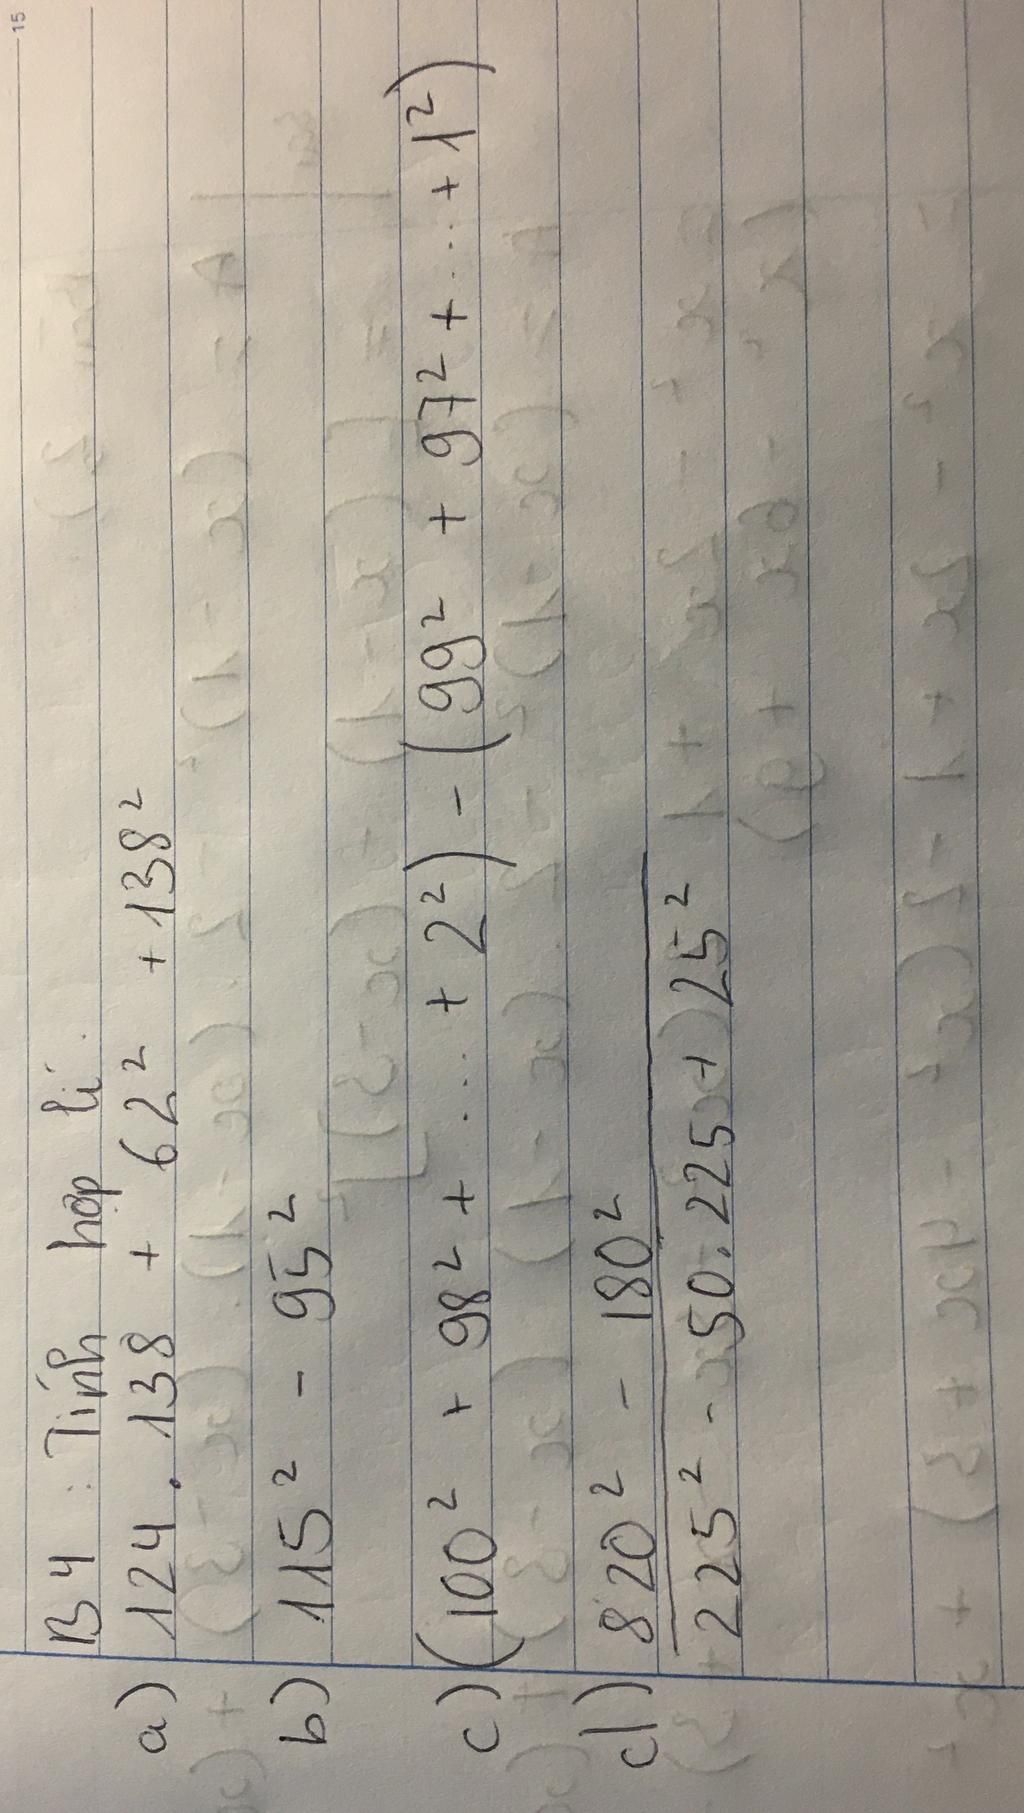 15
B4 : Tính hợp lí.
a) 124 . 138 + 62² + 138²
b) 115² - 95²
c) (100² + 98² + ... + 2²) - (99² + 97² + ... + 1²)
d) 820² - 180²
225² - 50.225 + 25²